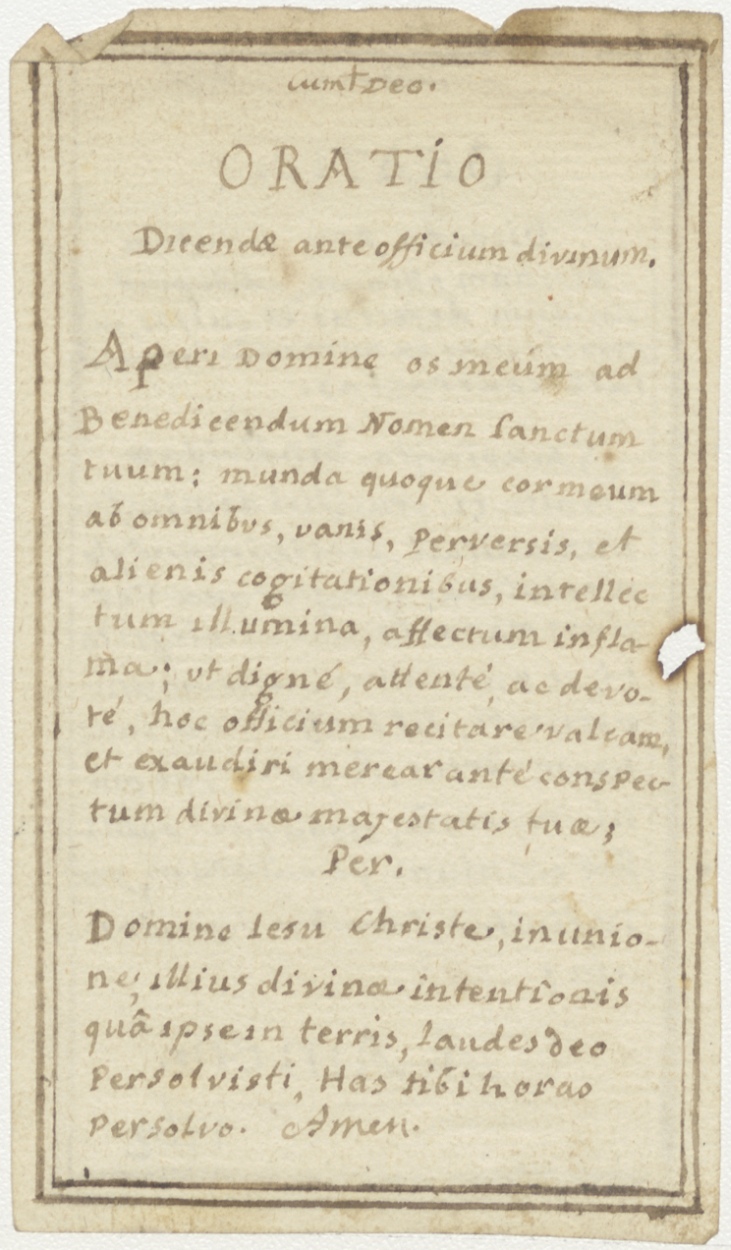 cum Deo.
ORATIO
Dicendæ ante officium divinum.
Aperi Domine os meúm ad
Benedicendum Nomen sanctum
tuum: munda quoque cor meum
ab omnibvs, vanis, perversis, et
alienis cogitationibus, intellec
tum illumina, affectum infla-
ma; vt digné, attenté, ac devo-
té, hoc officium recitare valeam,
et exaudiri merear anté conspec-
tum divinæ majestatis tuæ;
Per.
Domine Iesu Christe, in unio-
ne, illius divinæ intentionis
quâ ipse in terris, laudes deo
Persolvisti, Has tibi horas
persolvo. Amen.